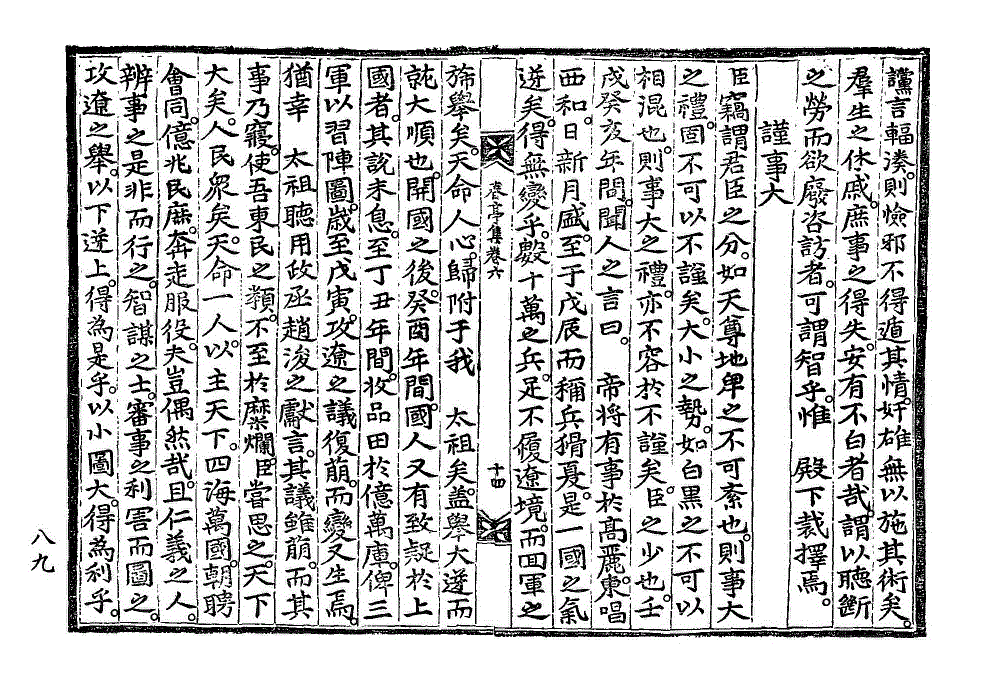 讜言輻湊。則憸邪不得遁其情。奸雄無以施其術矣。
羣生之休戚。庶事之得失。安有不白者哉。謂以聽斷
之勞而欲廢咨訪者。可謂智乎。惟 殿下裁擇焉。
謹事大
臣竊謂君臣之分。如天尊地卑之不可紊也。則事大
之禮。固不可以不謹矣。大小之勢。如白黑之不可以
相混也。則事大之禮。亦不容於不謹矣。臣之少也。壬
戌癸亥年間。聞人之言曰。 帝將有事於高麗。東唱
西和。日新月盛。至于戊辰而稱兵猾夏。是一國之氣
逆矣。得無變乎。數十萬之兵。足不履遼境。而回軍之
春亭集卷六 十四
旆擧矣。天命人心。歸附于我 太祖矣。盖擧大逆而
就大順也。開國之後。癸酉年間。國人又有致疑於上
國者。其說未息。至丁丑年間。收品田於億萬庫。俾三
軍以習陣圖。歲至戊寅。攻遼之議復萠。而變又生焉。
猶幸 太祖聽用政丞趙浚之獻言。其議雖萠。而其
事乃寢。使吾東民之類。不至於糜爛。臣嘗思之。天下
大矣。人民衆矣。天命一人。以主天下。四海萬國。朝聘
會同。億兆民庶。奔走服役。夫豈偶然哉。且仁義之人。
辨事之是非而行之。智謀之士。審事之利害而圖之。
攻遼之擧。以下逆上。得為是乎。以小圖大。得為利乎。
八九